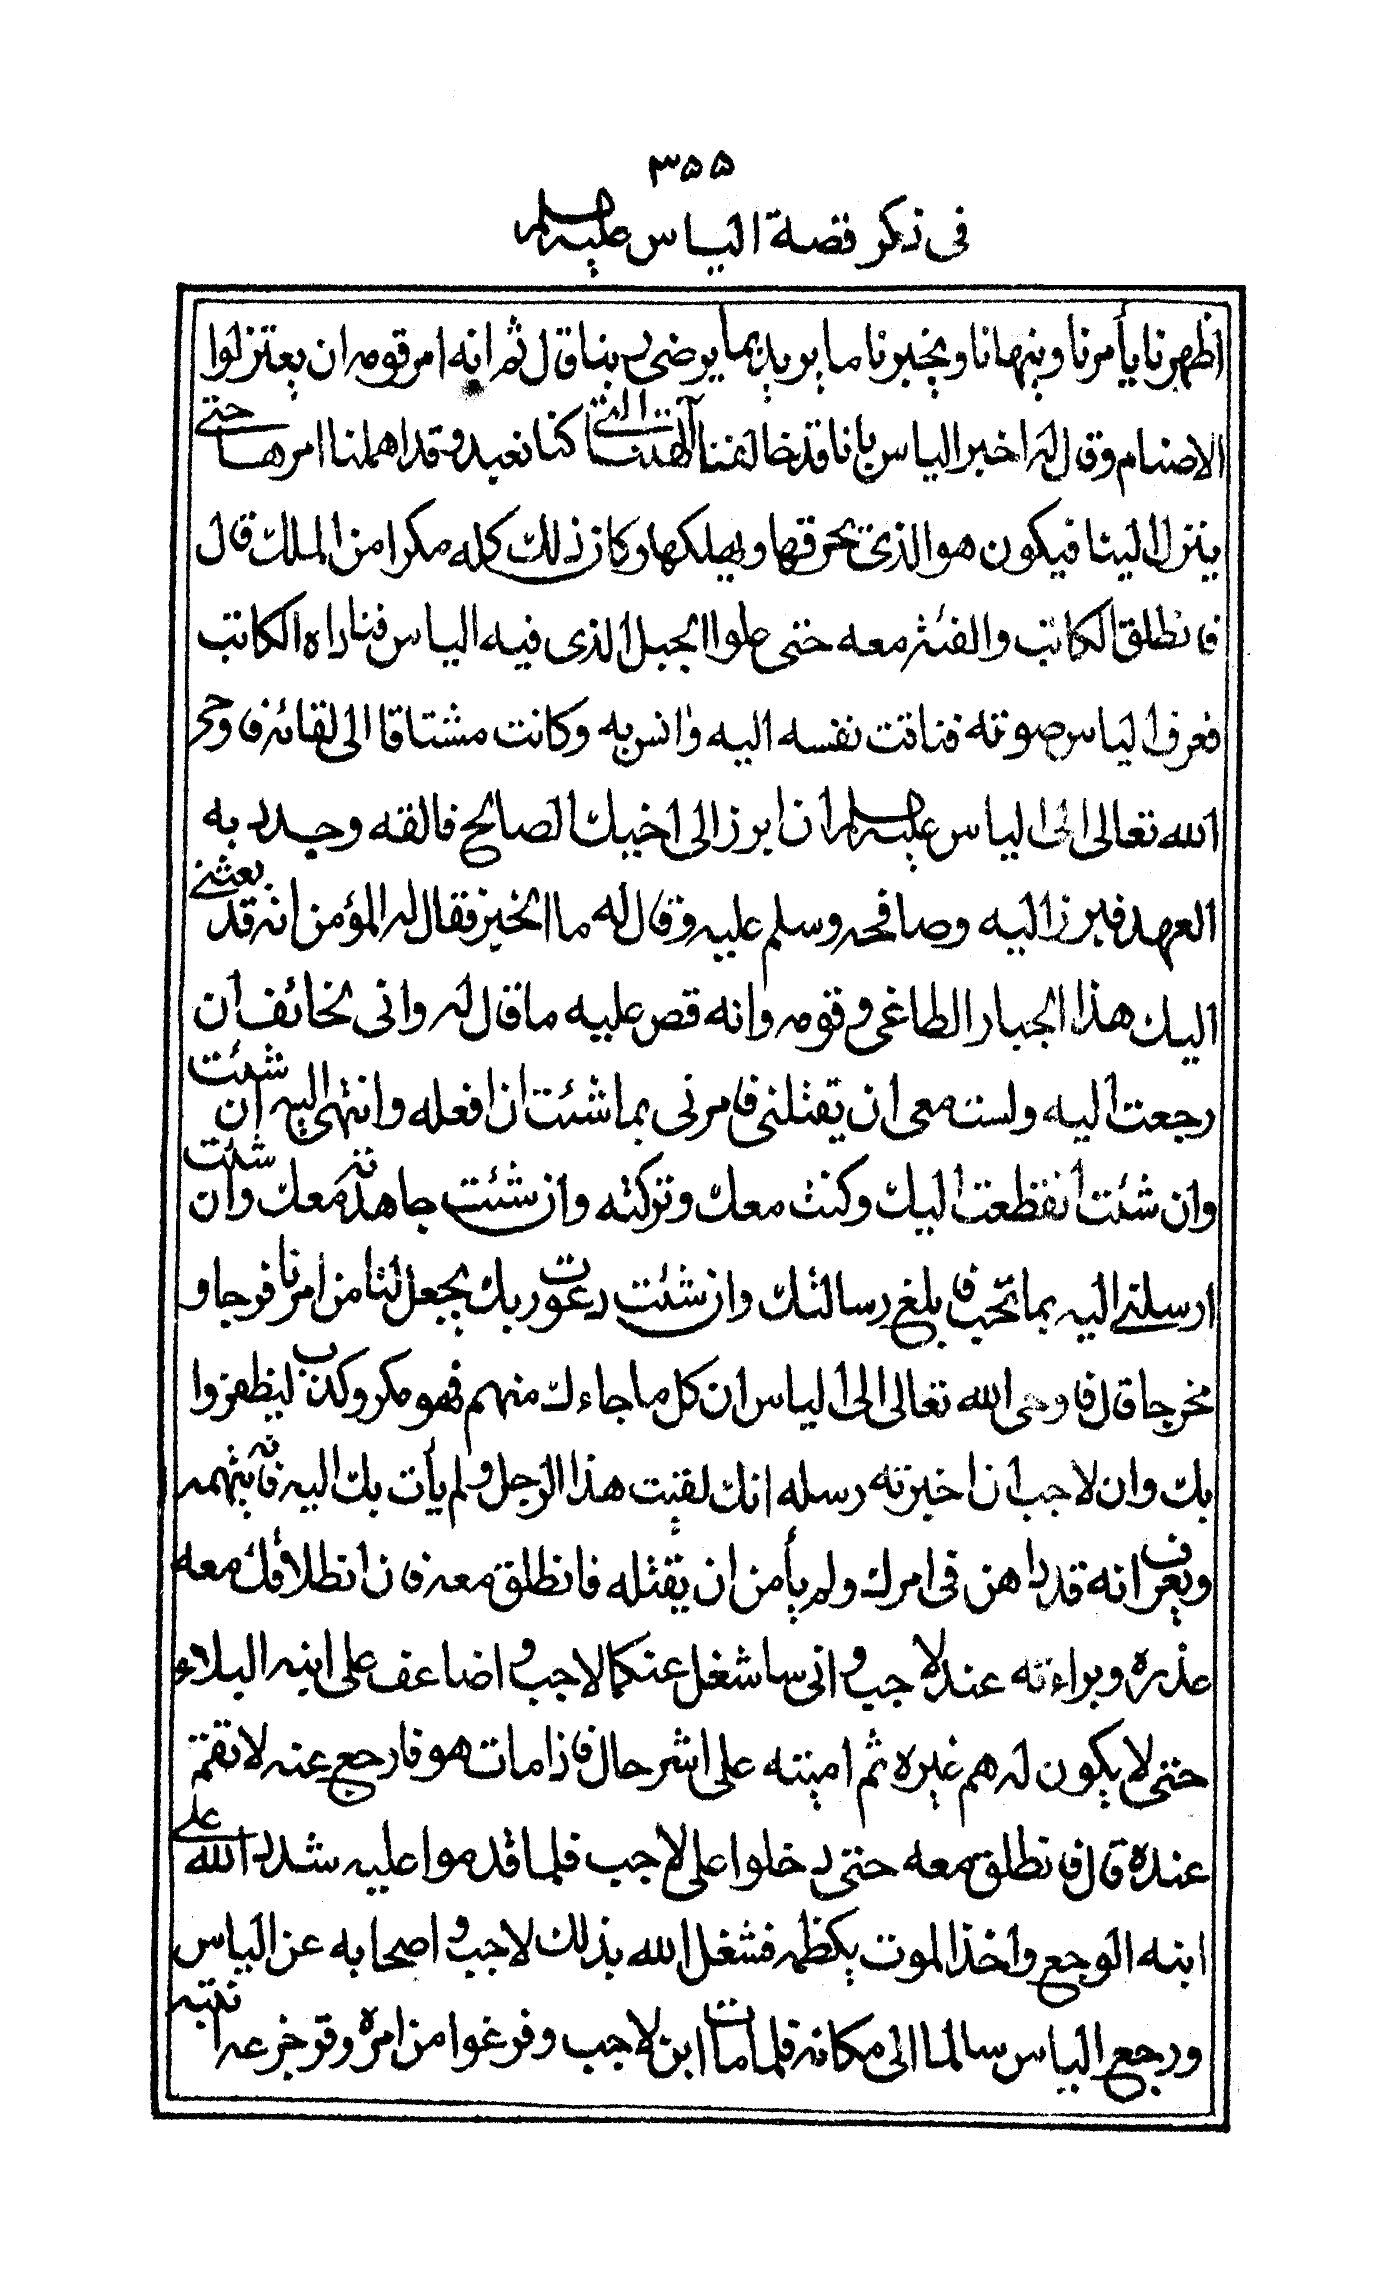 ٣٥٥
فى ذكر قصة الياس عليه السلام
اظهرنا يأمرنا وينهانا ويخبرنا ما يريد بما يرضى ربنا قال ثم انه امر قومه ان يعتزلوا
الاصنام وقال له اخبر الياس بانا قد خالفنا آلهتنا التى كنا نعبد وقد اهملنا امرها حتى
ينزل الينا فيكون هو الذى يحرقها ويهلكها وكان ذلك كله مكرا من الملك قال
فانطلق الكاتب والفئة معه حتى علوا الجبل الذى فيه الياس فناداه الكاتب
فعرف الياس صوته فتاقت نفسه اليه وانس به وكانت مشتاقا الى لقائه فاوحى
الله تعالى الى الياس عليه السلام ان ابرز الى اخيك الصالح فالقه وجدد به
العهد فبرز اليه وصافحه وسلم عليه وقال له ما الخبر فقال له المؤمن انه قد بعثنى
اليك هذا الجبار الطاغى وقومه وانه قص عليه ما قال له وانى لخائف ان
رجعت اليه ولست معى ان يقتلنى فامرنى بما شئت ان افعله وانتهى اليه ان شئت
وان شئت انقطعت اليك وكنت معك وتركته وان شئت جاهدته معك وان شئت
ارسلنى اليه بما تحب فابلغ رسالتك وان شئت دعوت ربك يجعل لنا من امرنا فرجا و
مخرجا قال فاوحى الله تعالى الى الياس ان كل ما جاءك منهم فهو مكر وكذب ليظهروا
بك وان لاجب ان اخبرته رسله انك لقيت هذا الرجل ولم يأت بك اليه فانه يتهمه
ويعرف انه قد داهن فى امرك ولم يأمن ان يقتله فانطلق معه فان انطلاقك معه
عذره وبراءته عند لاجب وانى ساشغل عنكما لاجب واضاعف على ابنه البلاء
حتى لا يكون له هم غيره ثم اميته على اشر حال فاذا مات هو فارجع عنه لا تقتم
عنده قال فانطلق معه حتى دخلوا على لاجب فلما قدموا عليه شدد الله على
ابنه الوجع واخذ الموت يكظمه فشغل الله بذلك لاجب واصحابه عن الياس
ورجع الياس سالما الى مكانه فلما مات ابن لاجب وفرغوا من امره وقر جزعه انتبه